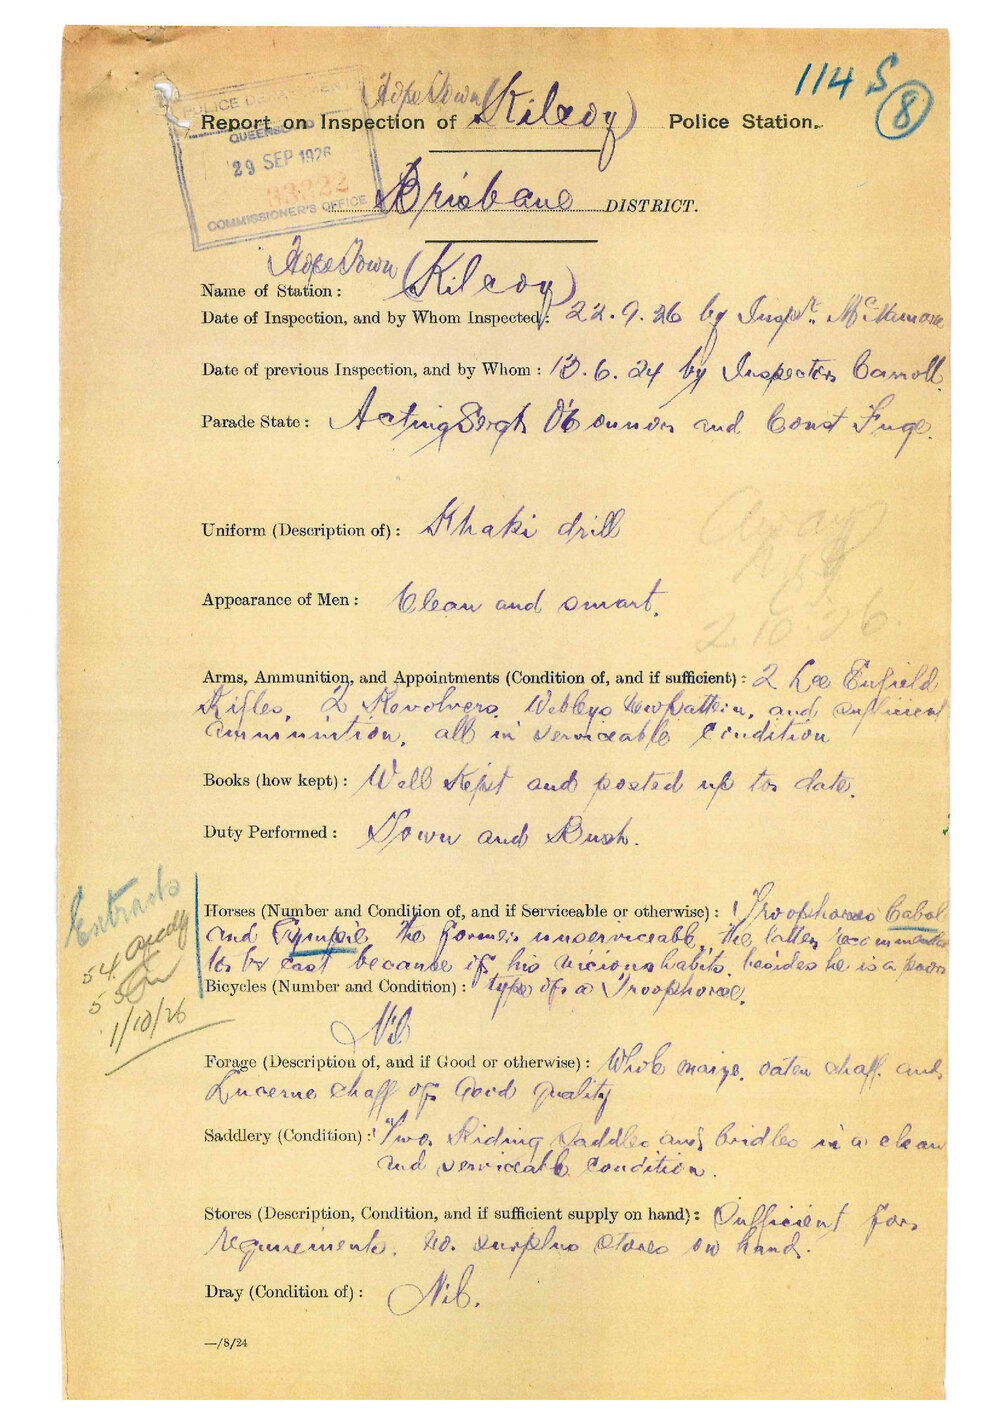 114 S
8
POLICE DEPARTMENT
QUEENSLAND
29 SEP 1926
COMMISSIONER'S OFFICE
Report on Inspection of Hope Town (Kilcoy) Police Station.
Brisbane DISTRICT.
Name of Station: Hope Town (Kilcoy)
Date of Inspection, and by Whom Inspected: 22.9.26 by Inspr.
Date of previous Inspection, and by Whom: 13.6.24 by Inspector Carroll.
Parade State: Acting Sergt O'Connor and Const Fuge.
Uniform (Description of): Khaki drill
Appearance of Men: Clean and smart.
Away
2.10.26.
Arms, Ammunition, and Appointments (Condition of, and if sufficient): 2 Lee Enfield
Rifles, 2 Revolvers, Webleys New Pattern, and sufficient
ammunition, all in serviceable condition
Books (how kept): Well Kept and posted up to date.
Duty Performed: Town and Bush.
Extracts
54
55
1/10/26
Horses (Number and Condition of, and if Serviceable or otherwise): Troophorses Cabal
and Gympie, the former unserviceable, the latter recommended
to be cast because of his vicious habits, besides he is a poor
Bicycles (Number and Condition): type of a Troophorse.
Nil
Forage (Description of, and if Good or otherwise): Whole maize, oaten chaff and
Lucerne chaff of Good quality
Saddlery (Condition): Two Riding Saddles and bridles in a clean
and serviceable condition.
Stores (Description, Condition, and if sufficient supply on hand): Sufficient for
requirements. No surplus stores on hand.
Dray (Condition of): Nil.
—/8/24